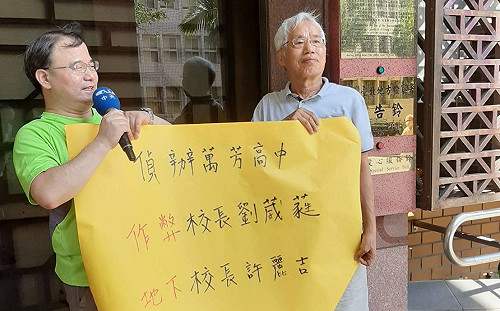 偵辦萬芳高中
作弊校長劉葳蕤
地下校長許麗吉
告鈴